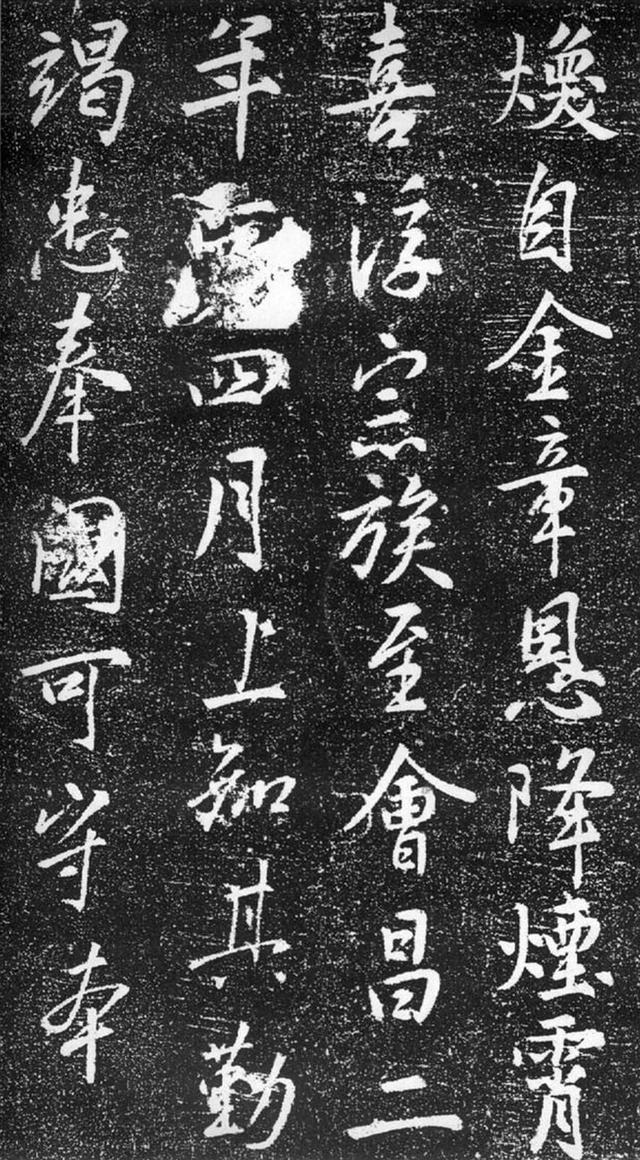 煥自金章恩降煙霄
喜浮宗族至會昌二
年四月上知其勤
竭忠奉國可守本